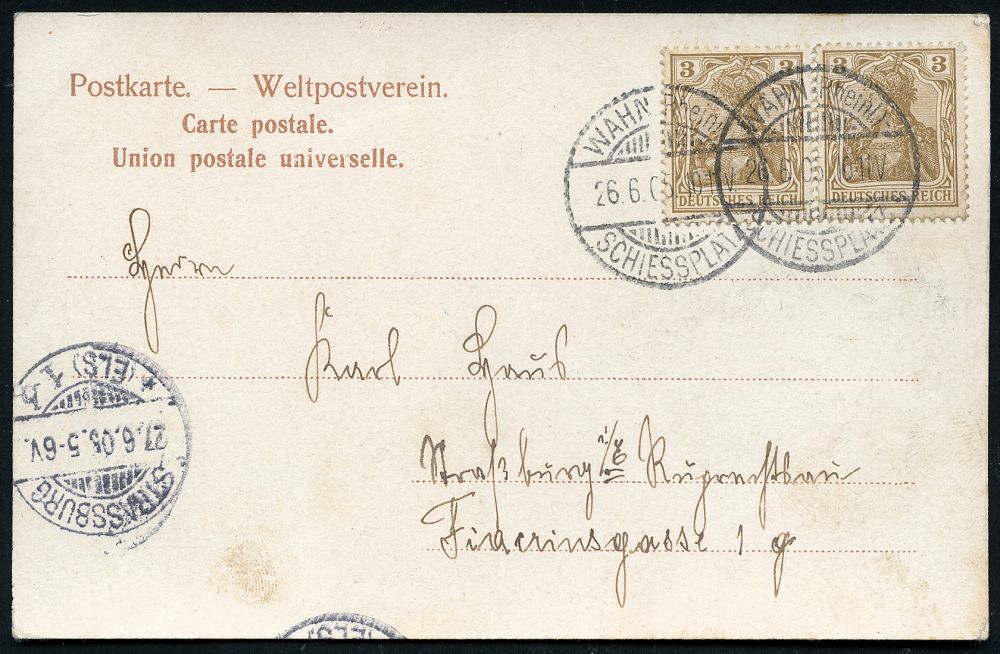 Postkarte. — Weltpostverein.
Carte postale.
Union postale universelle.
3 3
DEUTSCHES REICH
3 3
DEUTSCHES REICH
WAHN
26.6.05 10-11V
SCHIESSPLATZ
WAHN (Rheinl.)
26.6.05 10-11V
SCHIESSPLATZ
Herrn
Karl Haus
Straßburg i/E Ruprechtsau
Fiacriusgasse 1 g
STRASSBURG
27.6.05. 5-6V.
* (ELS) 1 b
(ELS)